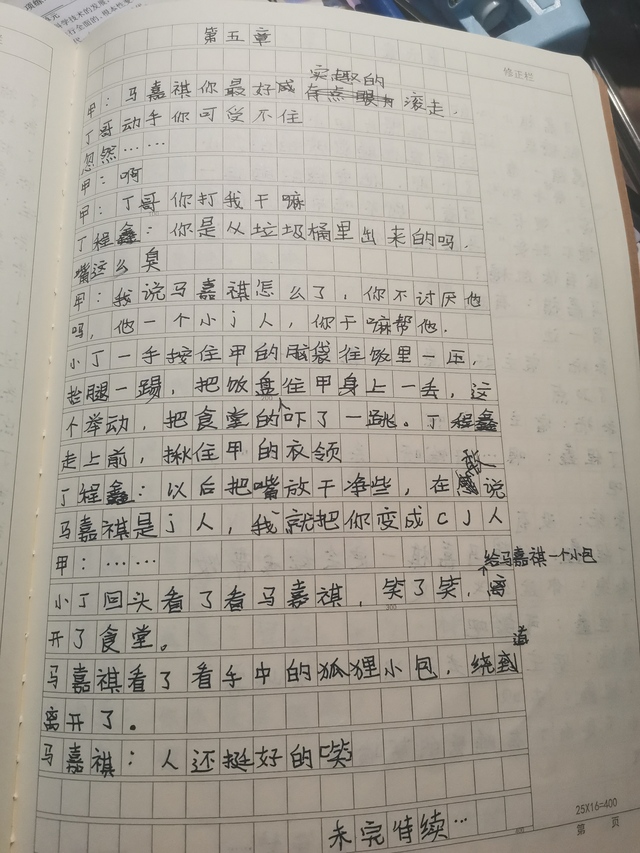 第五章
修正栏
甲：马嘉祺你最好成实趣的滚走，
丁哥动手你可受不住
忽然……
甲：啊
甲：丁哥你打我干嘛
丁程鑫：你是从垃圾桶里出来的吗，
嘴这么臭
甲：我说马嘉祺怎么了，你不讨厌他
吗，他一个小j人，你于嘛帮他.
小丁一手按住甲的脑袋往饭里一压，
抬腿一踢，把饭盘住甲身上一丢，这
个举动，把食堂的人吓了一跳。丁程鑫
走上前，揪住甲的衣领
丁程鑫：以后把嘴放干净些，在敢说
马嘉祺是j人，我就把你变成CJ人
甲：……
给马嘉祺一个小包
小丁回头看了看马嘉祺，笑了笑，离
开了食堂。
马嘉祺看了看手中的狐狸小包，绕道
离开了。
马嘉祺：人还挺好的
未完待续…
25X16=400
第 页